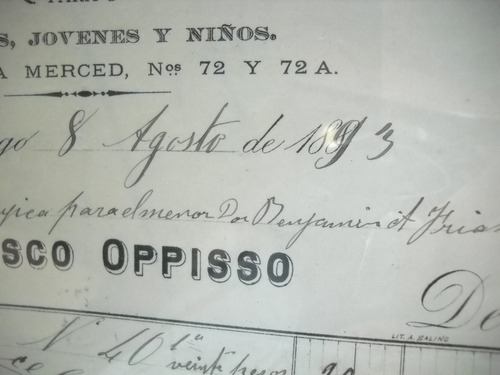 S, JOVENES Y NIÑOS.
A MERCED, Nos 72 Y 72 A.
go 8 Agosto de 1893
para el menor Don Benjamin
SCO OPPISSO
De
LIT. A. BALING
Nº 40 1ª
veinte pesos